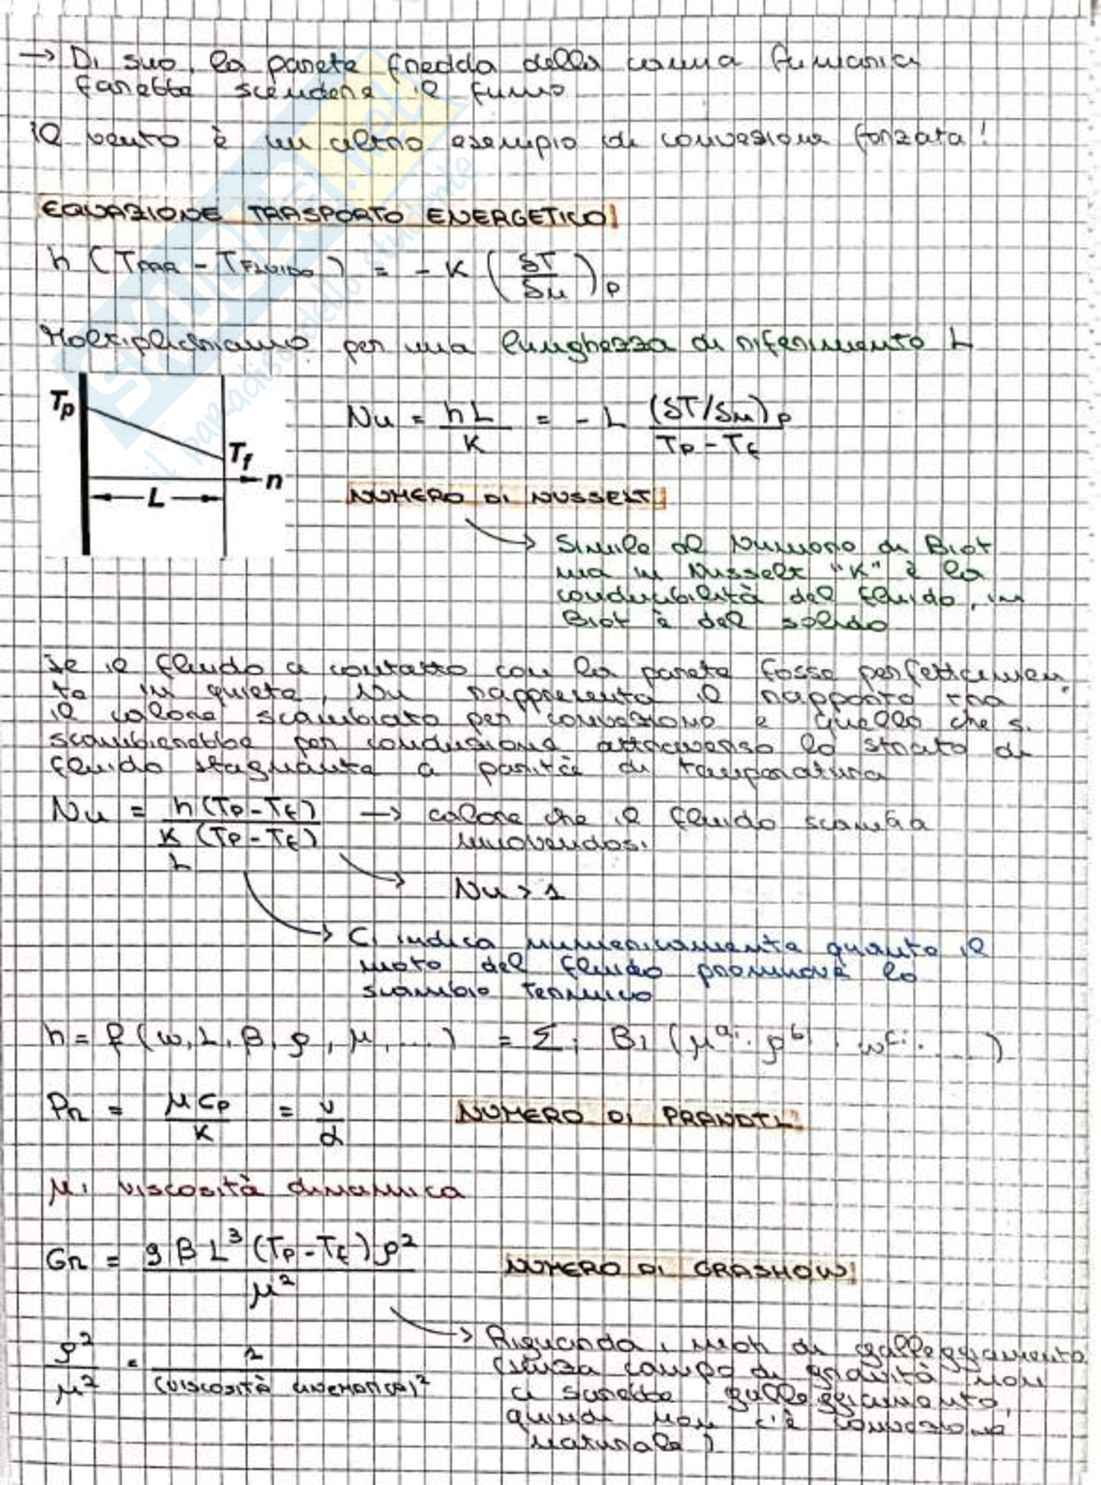 → Di suo, la parete fredda della canna fumaria
farebbe scendere il fumo
Il vento è un altro esempio di convezione forzata!
EQUAZIONE TRASPORTO ENERGETICO!
h (TPAR - TFLUIDO) = - K (δT/δn)p
Moltiplichiamo per una lunghezza di riferimento L
Tp
Tf
L
n
Nu = hL/K = - L (δT/δn)p / (Tp - Tf)
NUMERO DI NUSSELT!
→ Simile al Numero di Biot
ma in Nusselt "K" è la
conducibilità del fluido, in
Biot è del solido
Se il fluido a contatto con la parete fosse perfettamen
te in quiete, Nu rappresenta il rapporto tra
il calore scambiato per convezione e quello che si
scambierebbe per conduzione attraverso lo strato di
fluido stagnante a parità di temperatura
Nu = h(Tp-Tf) / (K/L (Tp-Tf)) → calore che il fluido scambia
muovendosi
Nu > 1
→ Ci indica numericamente quanto il
moto del fluido promuove lo
scambio termico
h = f (w, L, β, ρ, μ, ...) = Σi Bi (μ^ai · ρ^bi · w^ci · ....)
Pr = μcp/K = ν/α NUMERO DI PRANDTL!
μ: viscosità dinamica
Gr = gβL³(Tp-Tf)ρ²/μ² NUMERO DI GRASHOW!
ρ²/μ² = 1/(viscosità cinematica)²
→ Riguarda i moti di galleggiamento
(senza campo di gravità non
ci sarebbe galleggiamento,
quindi non c'è convezione
naturale)